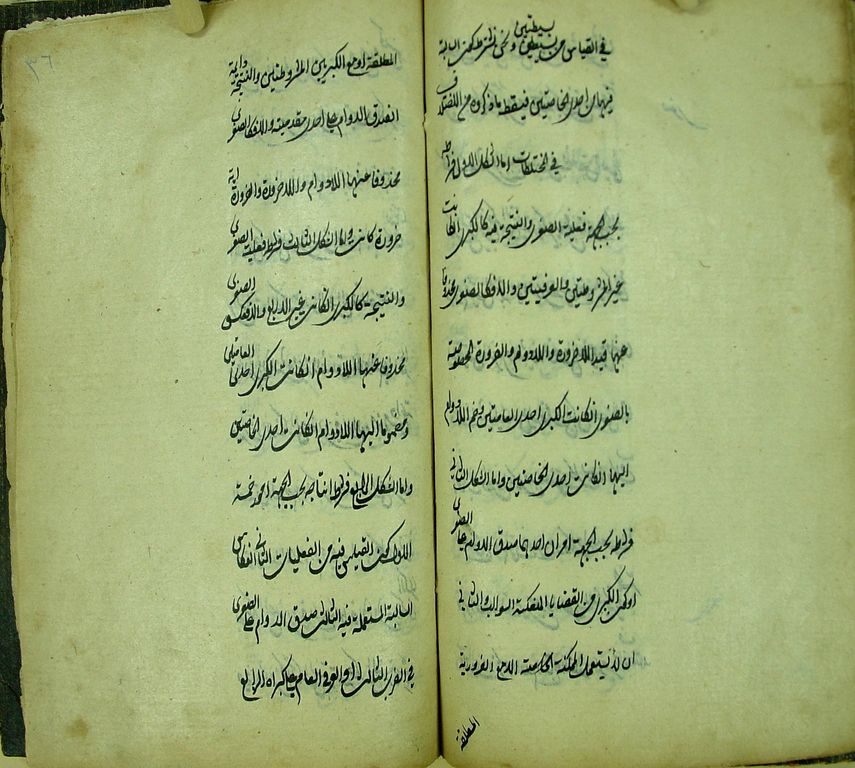 في القياس من بسيطتين ونحن نشترط كون السالبة
فيها من احدى الخاصتين فيسقط ما ذكروه من الاختلاف
في المختلطات اما الشكل الاول فشرطه
بحسب الجهة فعلية الصغرى والنتيجة فيه كالكبرى ان كانت
غير المشروطتين والعرفيتين والا فكالصغرى محذوفا
عنها قيد اللاضرورة واللادوام والضرورة المخصوصة
بالصغرى ان كانت الكبرى احدى العامتين وضم اللادوام
اليها ان كانت احدى الخاصتين واما الشكل الثاني
فشرطه بحسب الجهة امران احدهما صدق الدوام على الصغرى
او كون الكبرى من القضايا المنعكسة السوالب والثاني
ان لا يستعمل الممكنة الا مع الضرورية
المطلقة
٣٦
المطلقة او مع الكبريين المشروطتين والنتيجة دايمة
ان صدق الدوام على احدى مقدمتيه والا فكالصغرى
محذوفا عنها اللادوام واللاضرورة والضرورة اية
ضرورة كانت واما الشكل الثالث فشرطه فعلية الصغرى
والنتيجة كالكبرى ان كانت غير الاربع والا فكعكس الصغرى
محذوفا عنها اللادوام ان كانت الكبرى احدى العامتين
ومضموما اليها اللادوام ان كانت احدى الخاصتين
واما الشكل الرابع فشرط انتاجه بحسب الجهة امور خمسة
الاول كون القياس فيه من الفعليات الثاني انعكاس
السالبة المستعملة فيه الثالث صدق الدوام على الصغرى
في الضرب الثالث او العرفي العام على كبراه الرابع